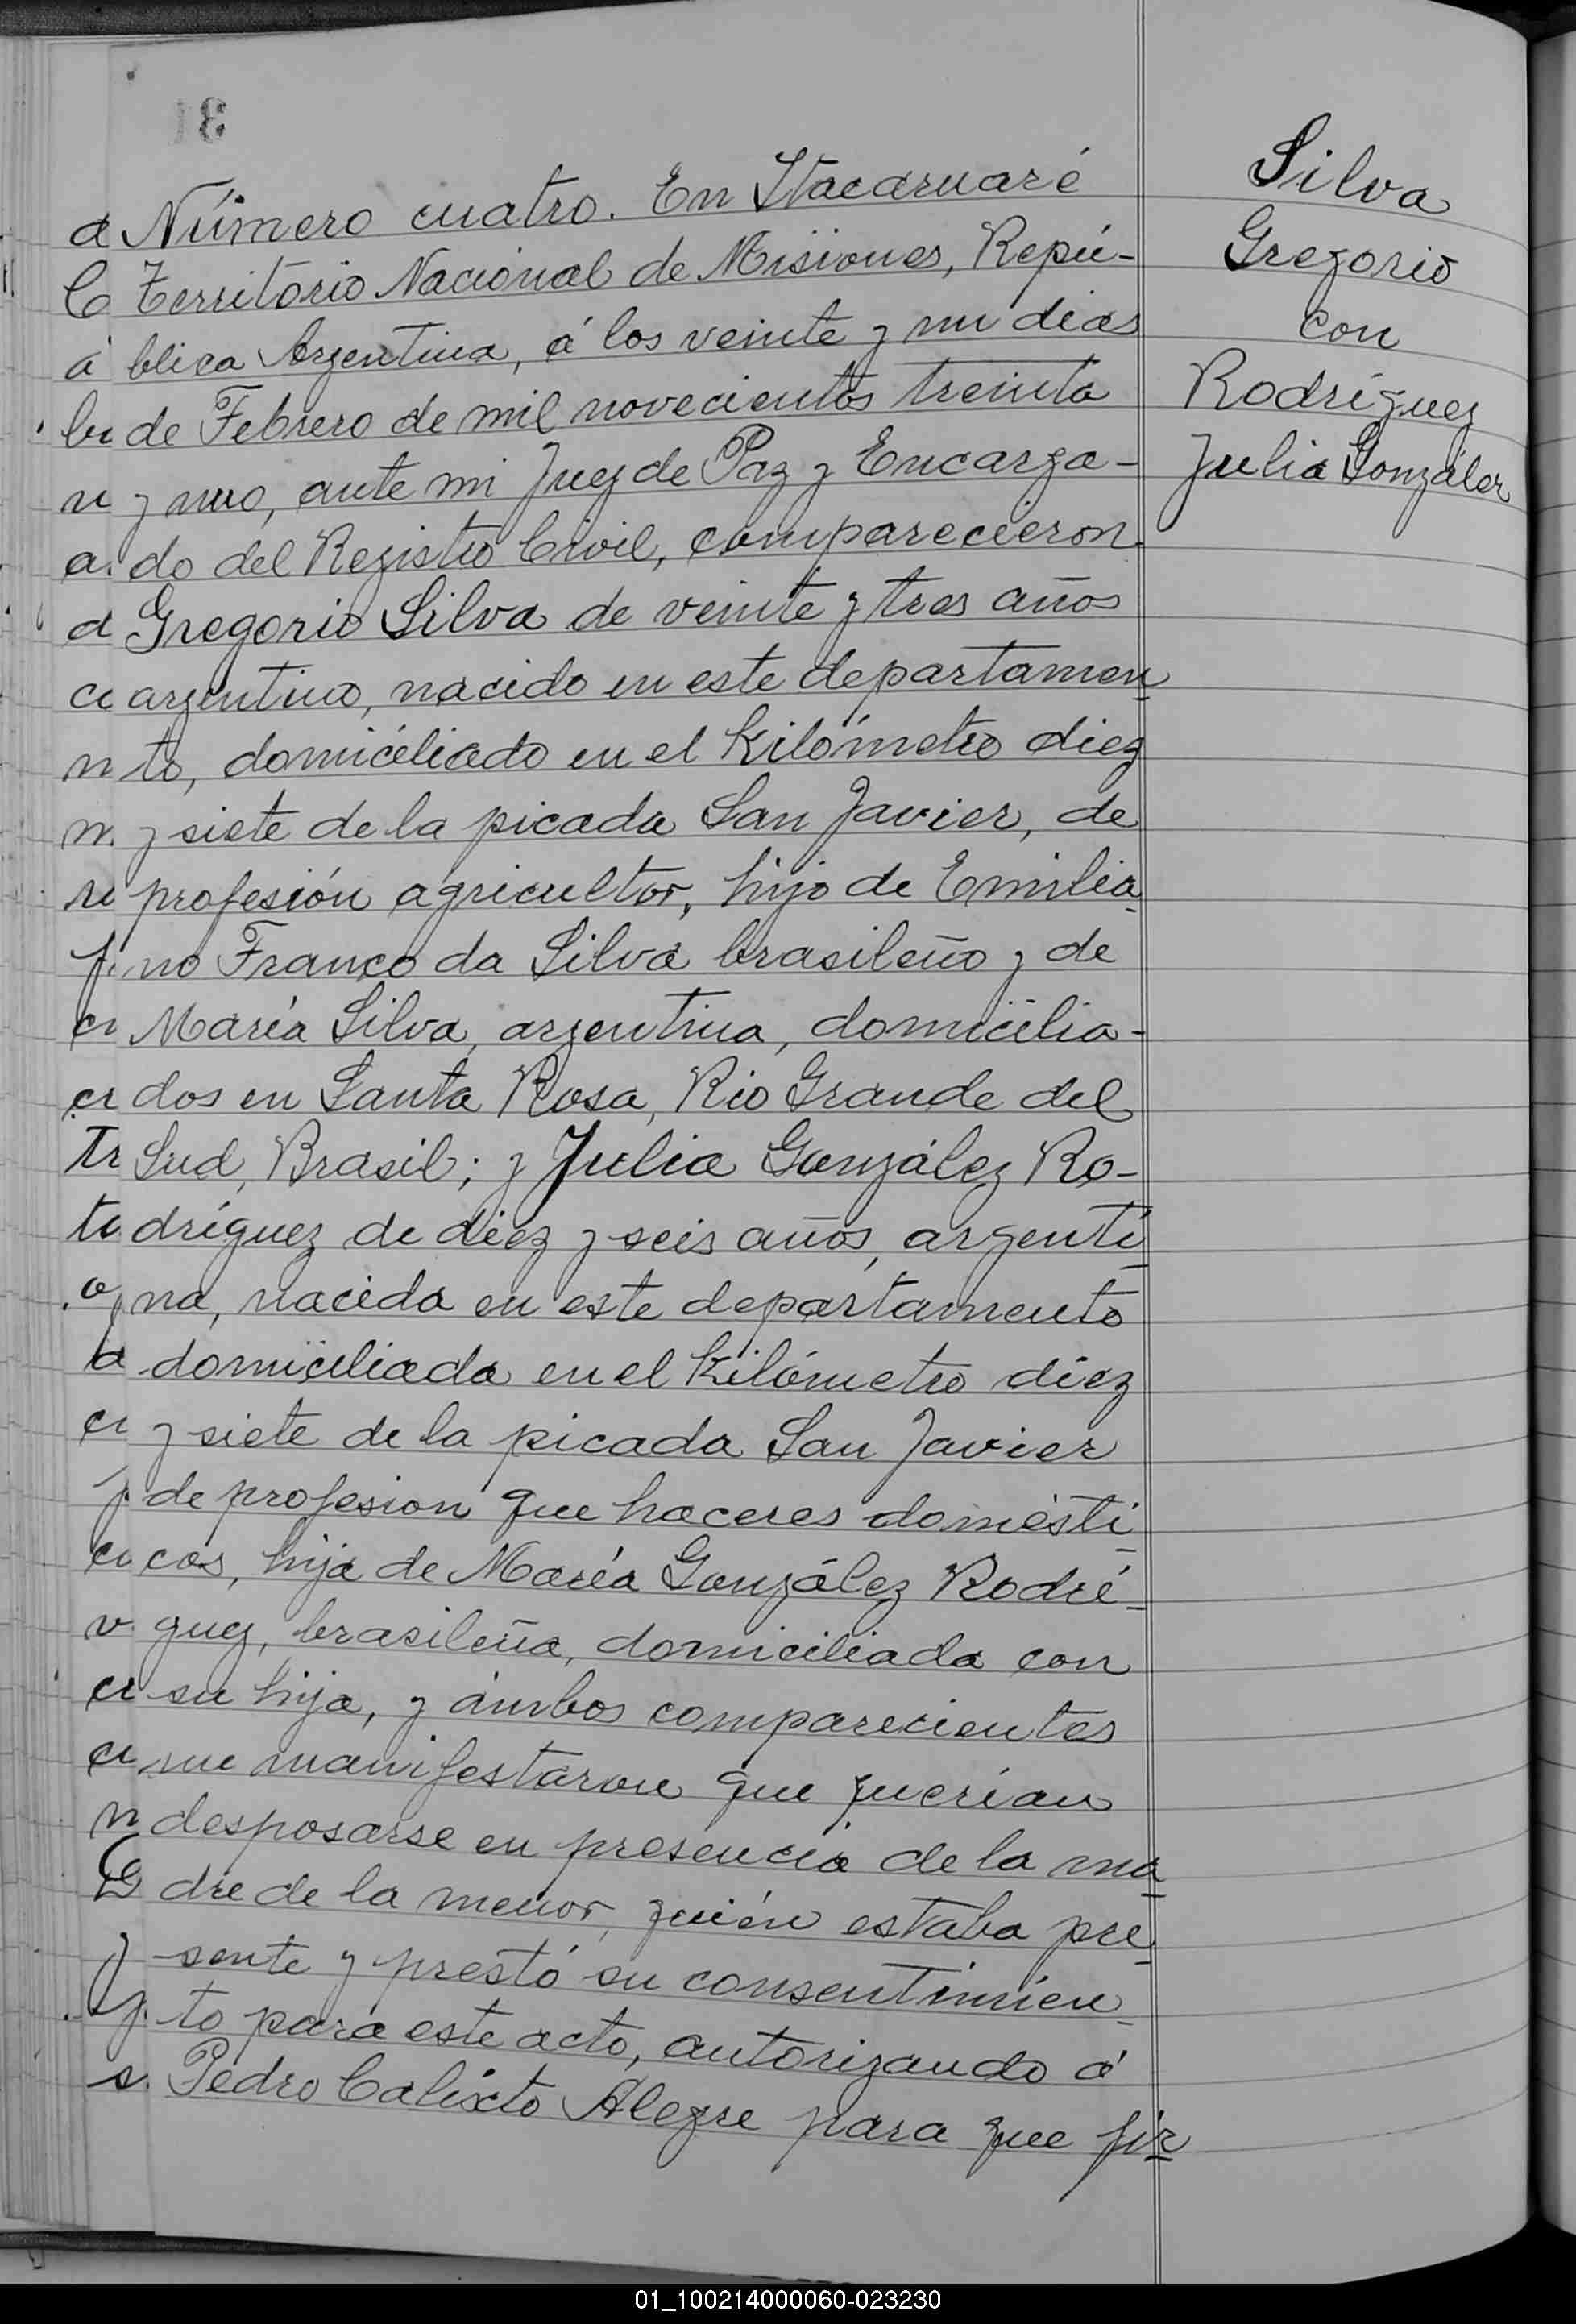 Número cuatro. En Itacaruaré
Territorio Nacional de Misiones, Repú-
blica Argentina, á los veinte y un dias
de Febrero de mil novecientos treinta
y uno, ante mi Juez de Paz y Encarga-
do del Registro Civil, comparecieron
Gregorio Silva de veinte y tres años
argentino, nacido en este departamen
to, domiciliado en el Kilómetro diez
y siete de la picada San Javier, de
profesión agricultor, hijo de Emilia
no Franco da Silva brasileño y de
María Silva, argentina, domicilia-
dos en Santa Rosa, Rio Grande del
Sud, Brasil; y Julia González Ro-
dríguez de diez y seis años, argenti
na, nacida en este departamento
domiciliada en el Kilómetro diez
y siete de la picada San Javier
de profesion que haceres domésti
cos, hija de María González Rodrí
guez, brasileña, domiciliada con
su hija, y ámbos comparecientes
me manifestaron que querían
desposarse en presencia de la ma
dre de la menor, quién estaba pre
sente y prestó su consentimien
to para este acto, autorizando á
Pedro Calixto Alegre para que fir
Silva
Gregorio
con
Rodríguez
Julia González
01_100214000060-023230